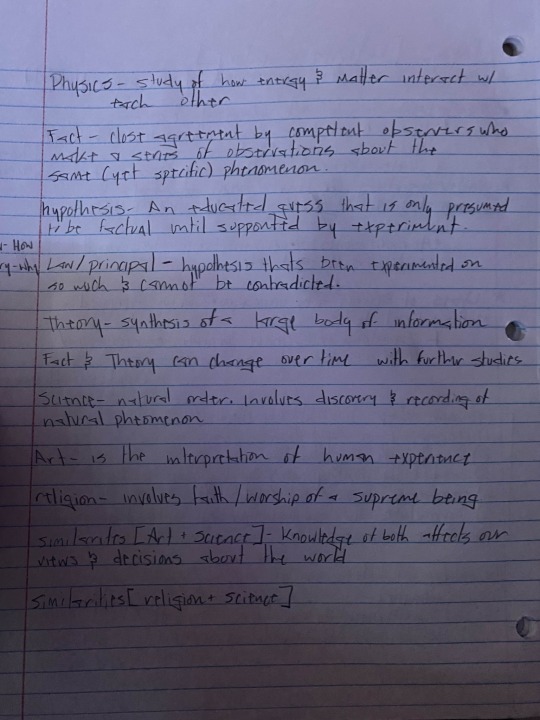 Physics - study of how energy & Matter interact w/
each other
Fact - close agreement by competent observers who
make a series of observations about the
same (yet specific) phenomenon.
hypothesis - An educated guess that is only presumed
to be factual until supported by experiment.
- How
ry - why Law/principal - hypothesis thats been experimented on
so much & cannot be contradicted.
Theory - synthesis of a large body of information
Fact & Theory can change over time with further studies
Science - natural order. involves discovery & recording of
natural pheomenon
Art - is the interpretation of human experience
religion - involves faith/worship of a supreme being
similarites [Art + science] - knowledge of both affects our
views & decisions about the world
similarities [religion + science]